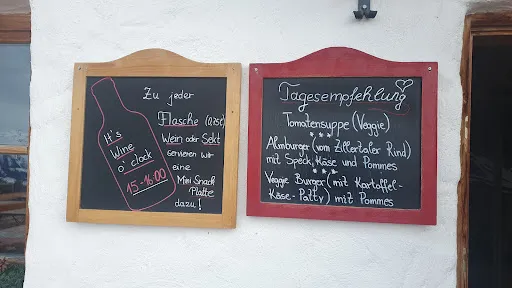 It's
Wine
o' clock
15-16:00
Zu jeder
Flasche (0,75l)
Wein oder Sekt
servieren wir
eine
Mini Snack
Platte
dazu!
Tagesempfehlung
Tomatensuppe (Veggie)
***
Almburger (vom Zillertaler Rind)
mit Speck, Käse und Pommes
***
Veggie Burger (mit Kartoffel-
Käse-Patty) mit Pommes